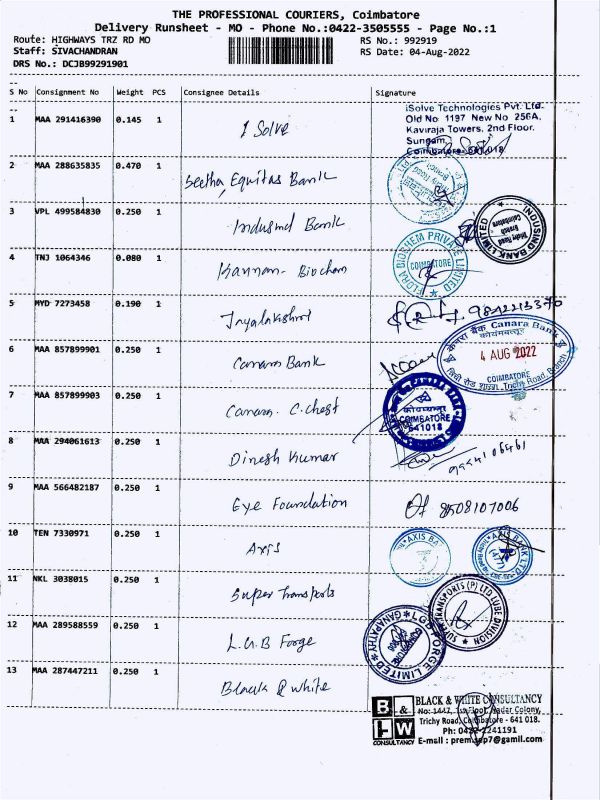 THE PROFESSIONAL COURIERS, Coimbatore
Delivery Runsheet - MO - Phone No.:0422-3505555 - Page No.:1
Route: HIGHWAYS TRZ RD MO
RS No.: 992919
Staff: SIVACHANDRAN
RS Date: 04-Aug-2022
DRS No.: DCJB99291901
S No Consignment No Weight PCS Consignee Details Signature
1 MAA 291416390 0.145 1 I Solve
iSolve Technologies Pvt. Ltd.
Old No 1197 New No 256A,
Kaviraja Towers, 2nd Floor,
Sungam,
Coimbatore- 641 018
2 MAA 288635835 0.470 1 Seetha, Equitas Bank
3 VPL 499584830 0.250 1 Indusind Bank
INDUSIND BANK LIMITED
Trichy Road
Branch
Coimbatore
4 TNJ 1064346 0.080 1 Kannan- Biochem
FLORA BIOCHEM PRIVATE LIMITED
COIMBATORE
5 MYD 7273458 0.190 1 Jayalakshmi
6 MAA 857899901 0.250 1 Canara Bank
केनरा बैंक Canara Bank
4 AUG 2022
COIMBATORE
Trichy Road, Branch
7 MAA 857899903 0.250 1 Canara. C.Chest
CANARA BANK
COIMBATORE
641018
8 MAA 294061613 0.250 1 Dinesh Kumar
9 MAA 566482187 0.250 1 Eye Foundation
8508107006
10 TEN 7330971 0.250 1 Axis
AXIS BA
AXIS BANK LTD
11 NKL 3038015 0.250 1 Super Transports
SUPER TRANSPORTS (P) LTD LUBE DIVISION
12 MAA 289588559 0.250 1 L.G.B Forge
LGB FORGE LIMITED
GANAPATHY
13 MAA 287447211 0.250 1 Black & White
B & W
CONSULTANCY
BLACK & WHITE CONSULTANCY
No: 1447, 1st Floor, Nadar Colony,
Trichy Road, Coimbatore - 641 018.
Ph: 0422-2241191